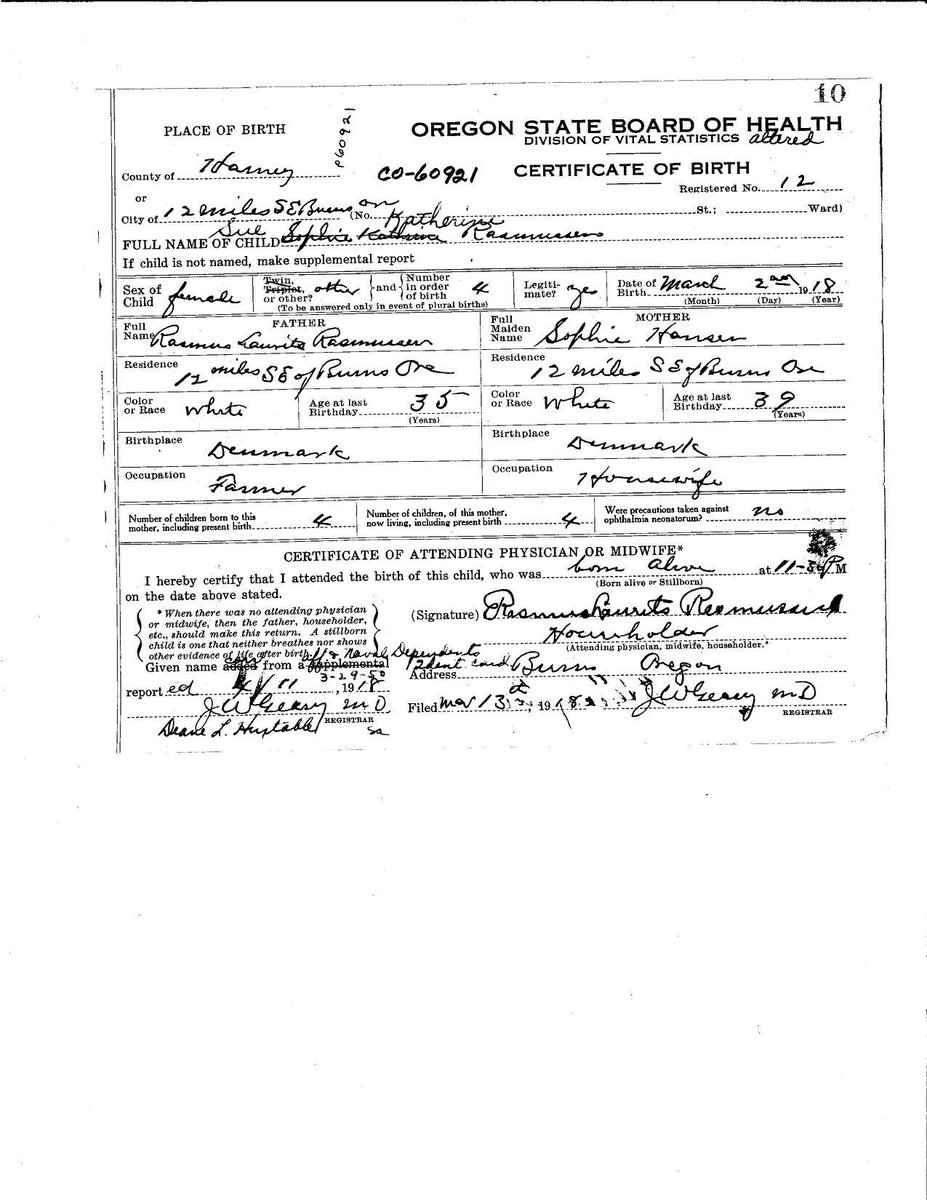 10
PLACE OF BIRTH
P60921
OREGON STATE BOARD OF HEALTH
DIVISION OF VITAL STATISTICS altered
County of Harney
CO-60921
CERTIFICATE OF BIRTH
Registered No. 12
or
City of 12 miles SE Burns Ore (No. St.; Ward)
Sue Katherine
FULL NAME OF CHILD Sophie Kathrina Rasmussen
If child is not named, make supplemental report
Sex of Child female
Twin, Triplet, or other? other and Number in order of birth 4
(To be answered only in event of plural births)
Legiti-mate? yes
Date of Birth March 2nd 1918
(Month) (Day) (Year)
FATHER
Full Name Rasmus Laurits Rasmussen
MOTHER
Full Maiden Name Sophie Hansen
Residence 12 miles SE of Burns Ore
Residence 12 miles SE of Burns Ore
Color or Race White Age at last Birthday 35 (Years)
Color or Race White Age at last Birthday 39 (Years)
Birthplace Denmark
Birthplace Denmark
Occupation Farmer
Occupation Housewife
Number of children born to this mother, including present birth 4
Number of children, of this mother, now living, including present birth 4
Were precautions taken against ophthalmia neonatorum? no
CERTIFICATE OF ATTENDING PHYSICIAN OR MIDWIFE*
I hereby certify that I attended the birth of this child, who was born alive at 11-30 P M
(Born alive or Stillborn)
on the date above stated.
* When there was no attending physician
or midwife, then the father, householder,
etc., should make this return. A stillborn
child is one that neither breathes nor shows
other evidence of life after birth.
(Signature) Rasmus Laurits Rasmussen
Householder
(Attending physician, midwife, householder.*)
Given name added from a supplemental
Naval Dependents
Ident card
3-29-50
report ed 4/11, 1918
J W Geary M D
REGISTRAR
Deane L. Huxtable
sa
Address Burns Oregon
Filed Mar 13th, 1918 J W Geary M D
REGISTRAR